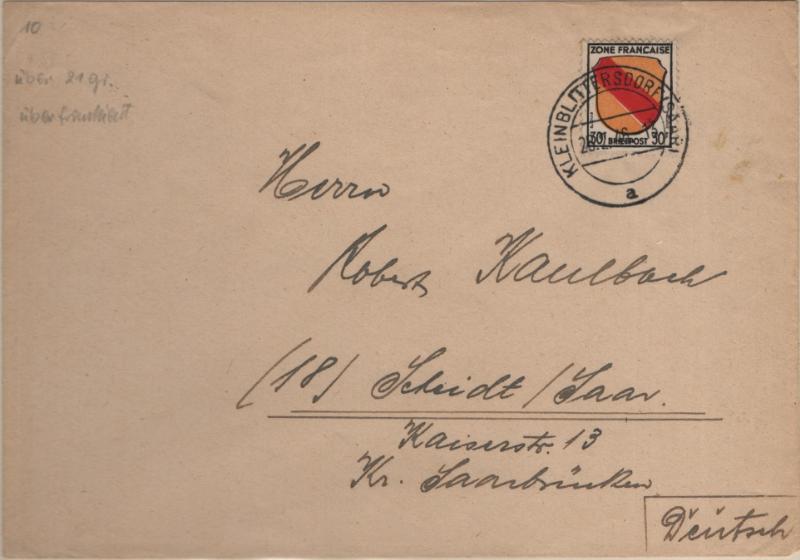 10
über 21 gr.
überfrankiert
ZONE FRANÇAISE
30 F BRIEFPOST 30 F
KLEINBLITTERSDORF (SAAR)
a
Herrn
Robert Kaulbach
(18) Scheidt / Saar.
Kaiserstr. 13
Kr. Saarbrücken
Deutsch